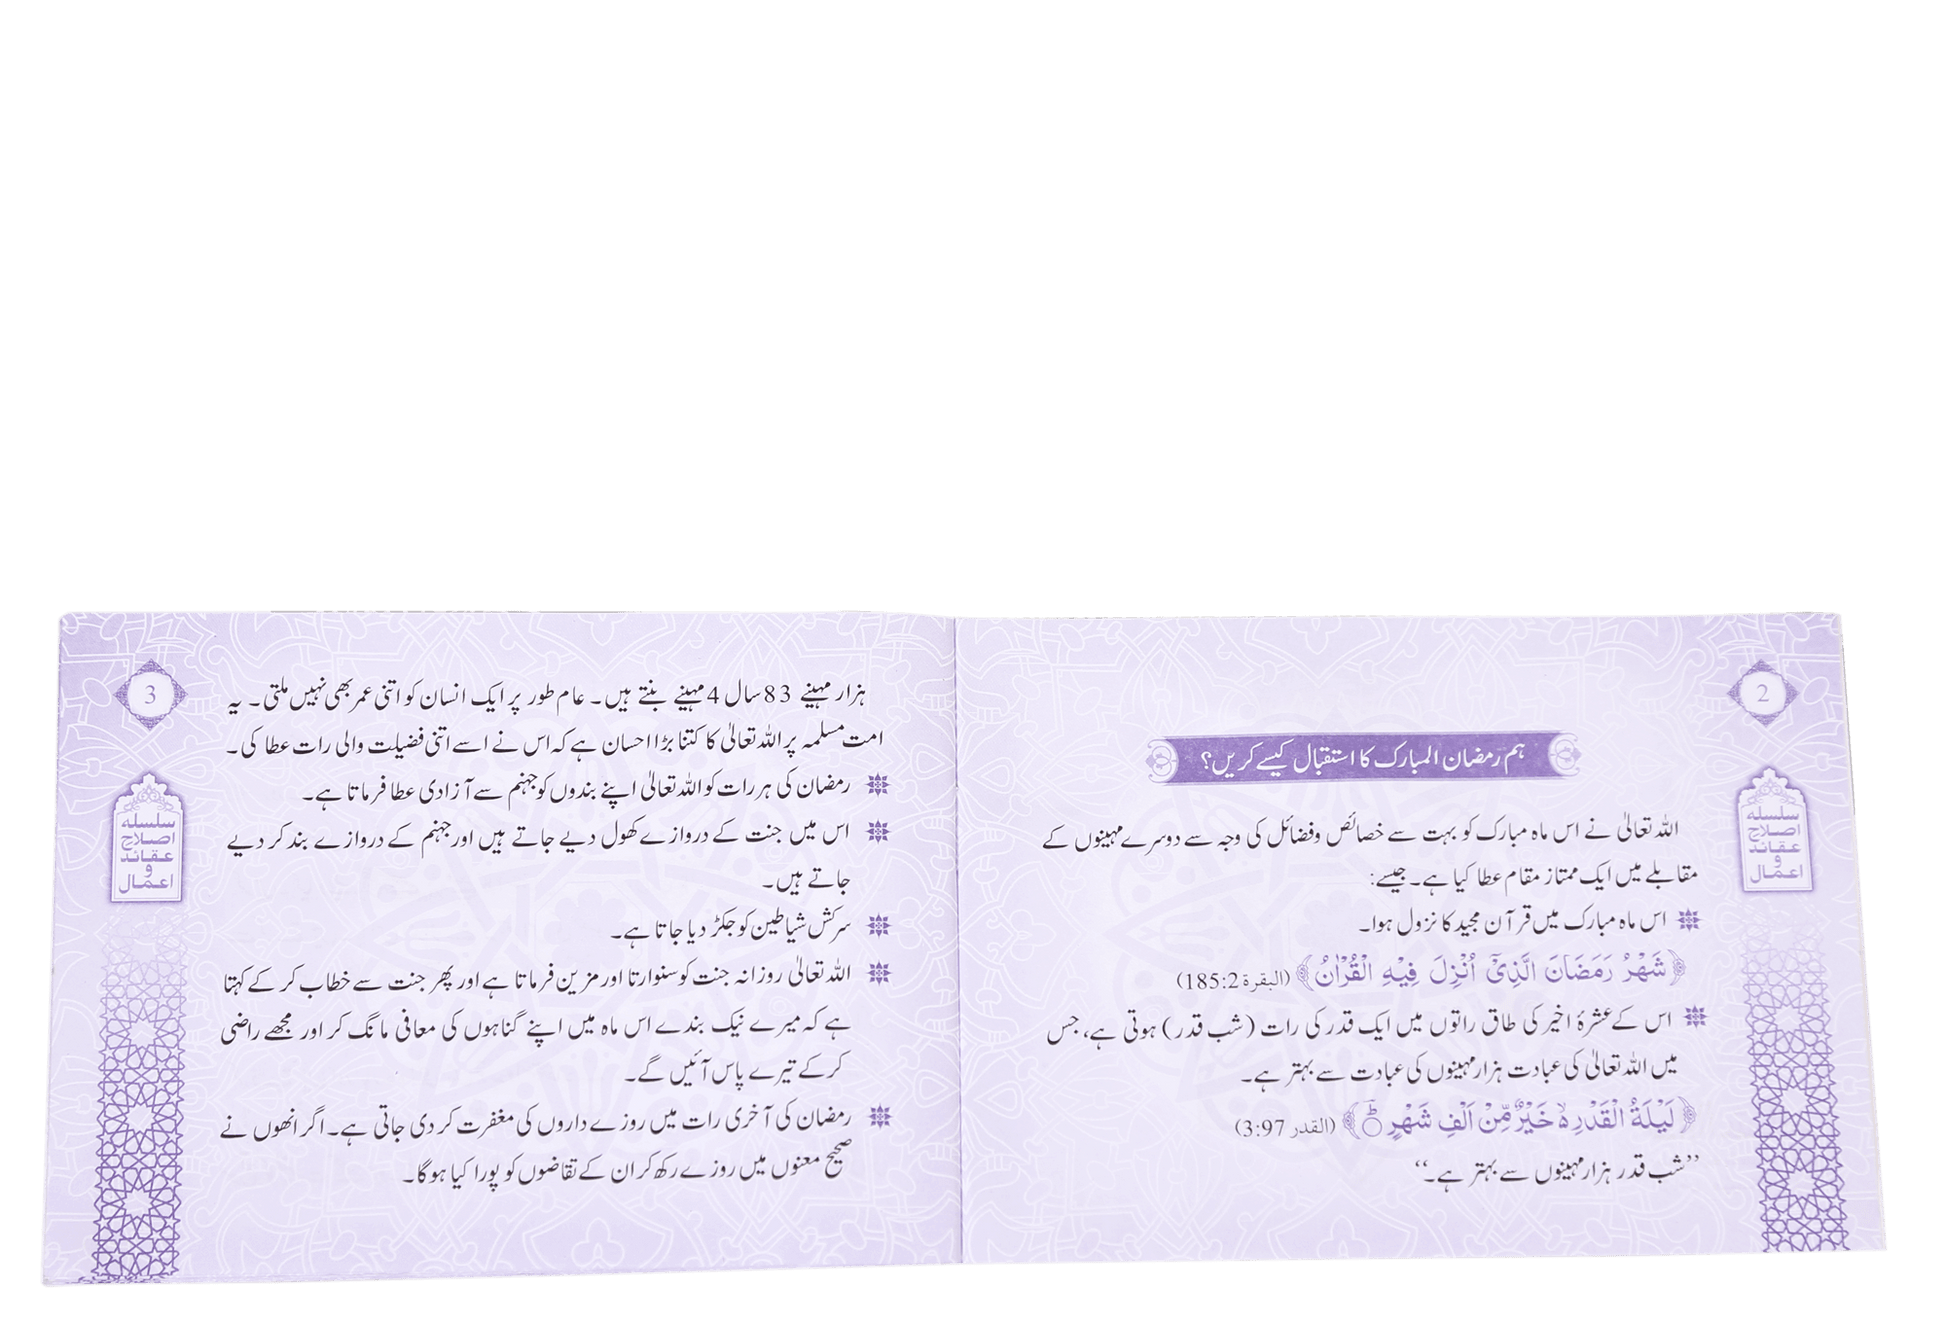 2
سلسلہ
اصلاح
عقائد
و
اعمال
ہم رمضان المبارک کا استقبال کیسے کریں؟
اللہ تعالیٰ نے اس ماہ مبارک کو بہت سے خصائص وفضائل کی وجہ سے دوسرے مہینوں کے
مقابلے میں ایک ممتاز مقام عطا کیا ہے۔ جیسے:
اس ماہ مبارک میں قرآن مجید کا نزول ہوا۔
﴿شَهْرُ رَمَضَانَ الَّذِیْٓ اُنْزِلَ فِیْهِ الْقُرْاٰنُ﴾ (البقرة 185:2)
اس کے عشرۂ اخیر کی طاق راتوں میں ایک قدر کی رات (شب قدر) ہوتی ہے، جس
میں اللہ تعالیٰ کی عبادت ہزار مہینوں کی عبادت سے بہتر ہے۔
﴿لَیْلَةُ الْقَدْرِ ۙ۬ خَیْرٌ مِّنْ اَلْفِ شَهْرٍ ؕ۝﴾ (القدر 3:97)
’’شب قدر ہزار مہینوں سے بہتر ہے۔‘‘
3
سلسلہ
اصلاح
عقائد
و
اعمال
ہزار مہینے 83 سال 4 مہینے بنتے ہیں۔ عام طور پر ایک انسان کو اتنی عمر بھی نہیں ملتی۔ یہ
امت مسلمہ پر اللہ تعالیٰ کا کتنا بڑا احسان ہے کہ اس نے اسے اتنی فضیلت والی رات عطا کی۔
رمضان کی ہر رات کو اللہ تعالیٰ اپنے بندوں کو جہنم سے آزادی عطا فرماتا ہے۔
اس میں جنت کے دروازے کھول دیے جاتے ہیں اور جہنم کے دروازے بند کر دیے
جاتے ہیں۔
سرکش شیاطین کو جکڑ دیا جاتا ہے۔
اللہ تعالیٰ روزانہ جنت کو سنوارتا اور مزین فرماتا ہے اور پھر جنت سے خطاب کر کے کہتا
ہے کہ میرے نیک بندے اس ماہ میں اپنے گناہوں کی معافی مانگ کر اور مجھے راضی
کر کے تیرے پاس آئیں گے۔
رمضان کی آخری رات میں روزے داروں کی مغفرت کر دی جاتی ہے۔ اگر انھوں نے
صحیح معنوں میں روزے رکھ کر ان کے تقاضوں کو پورا کیا ہوگا۔